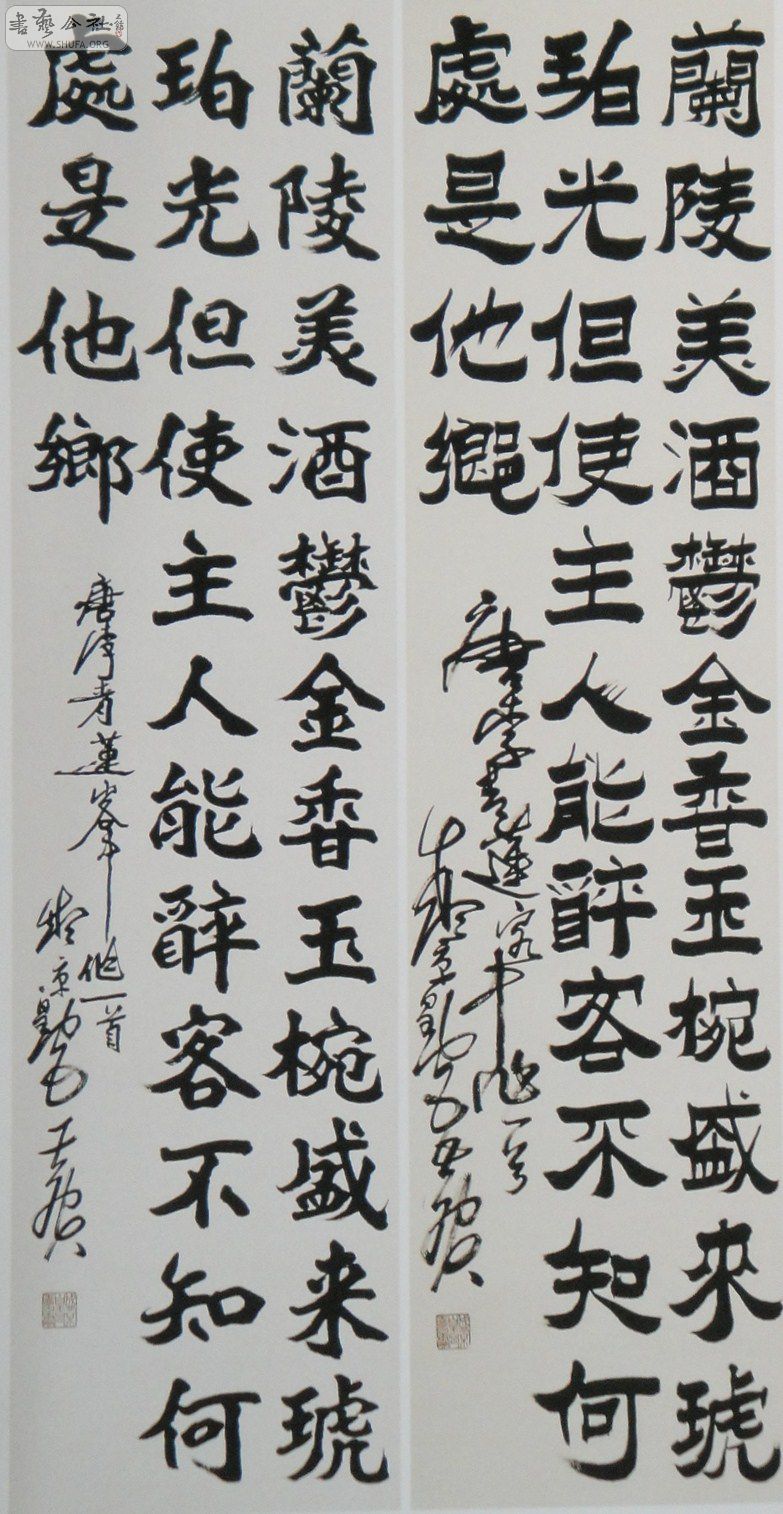 蘭陵美酒鬱金香玉椀盛來琥
珀光但使主人能辭客不知何
處是他鄉
唐李青蓮客中作一首
蘭陵美酒鬱金香玉椀盛来琥
珀光但使主人能辭客不知何
處是他鄉
唐李青蓮客中作一首
書藝公社
WWW.SHUFA.ORG